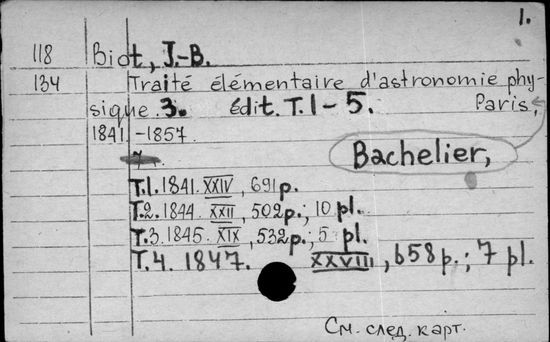 1.
118 Biot, J.-B.
134 Traité élémentaire d'astronomie phy-
sique. 3. édit. T. 1 - 5. Paris,
1841 - 1857.
Bachelier,
T.1. 1841. XXIV, 691 p.
T.2. 1844. XXII, 502 p.; 10 pl.
T.3. 1845. XIX, 532 p.; 5 pl.
T.4. 1847. XXVIII, 658 p.; 7 pl.
См. след. карт.